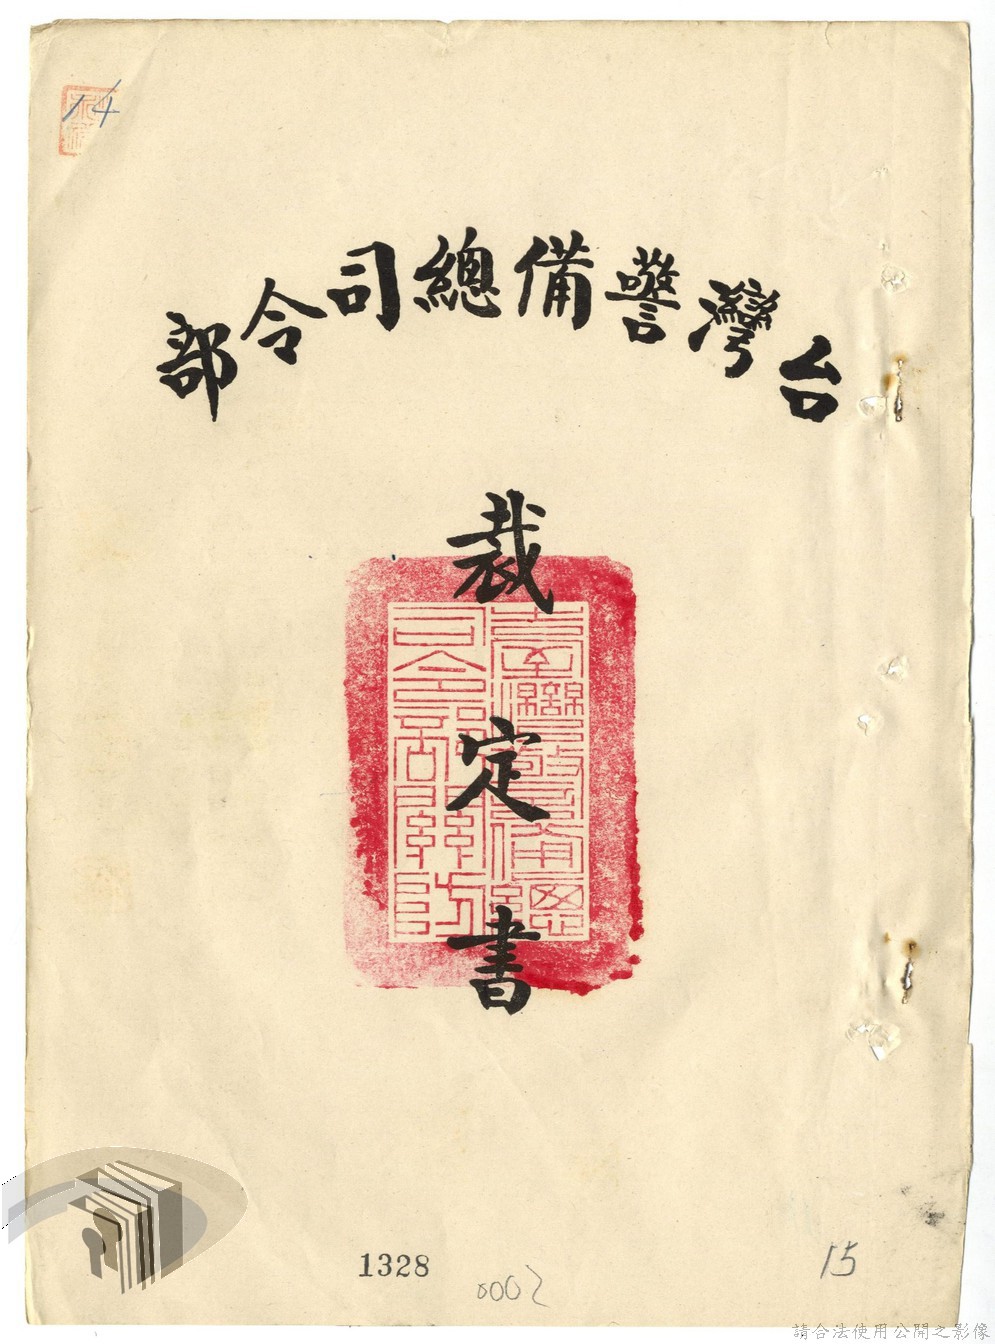 14
台灣警備總司令部
裁定書
臺灣警備總
司令部關防
1328
0002
15
請合法使用公開之影像